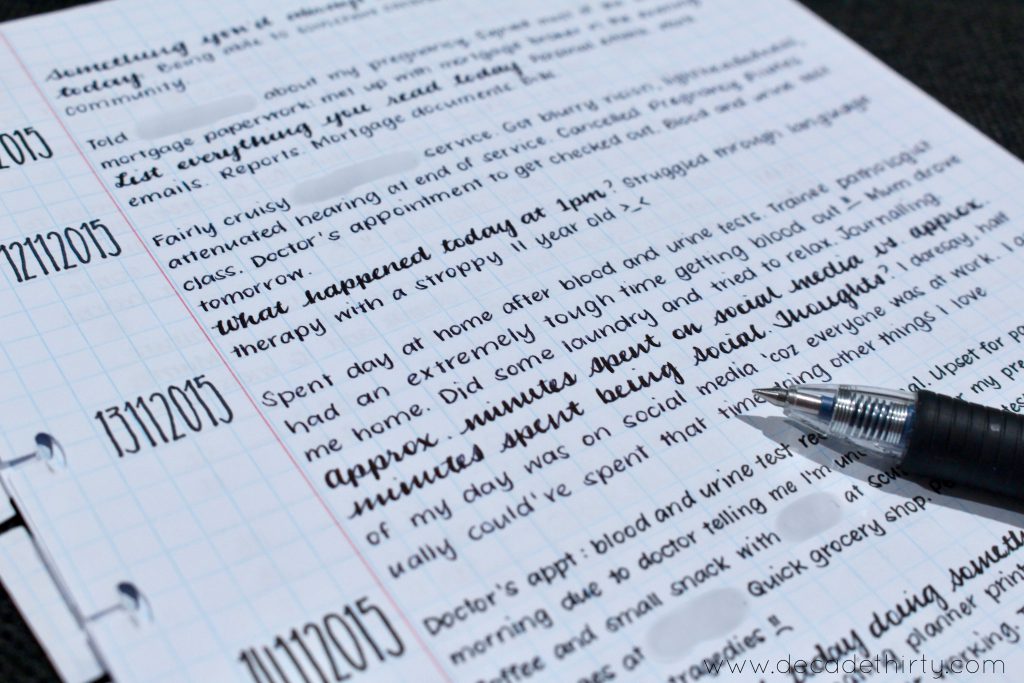 something you'd always
today. Being able to
community
Told about my pregnancy.
mortgage paperwork; met up with mortgage broker in the evening.
List everything you read today. Personal emails, work
emails. Reports. Mortgage documents.
12112015
Fairly cruisy service. Got blurry vision, lightheadedness,
attenuated hearing at end of service. Cancelled Pregnancy Pilates
class. Doctor's appointment to get checked out. Blood and urine test
tomorrow.
What happened today at 1pm? Struggled through language
therapy with a stroppy 11 year old >_<
13112015
Spent day at home after blood and urine tests. Trainee pathologist
had an extremely tough time getting blood out Mum drove
me home. Did some laundry and tried to relax. Journalling.
approx. minutes spent on social media vs. approx.
minutes spent being social. Thoughts? I daresay, half
of my day was on social media 'coz everyone was at work. I
ually could've spent that time doing other things I love
14112015
Doctor's appt: blood and urine test Upset for
morning due to doctor telling me I'm my
coffee and small snack with at
at Quick grocery shop.
tragedies
today doing
planner
working.
www.decadethirty.com